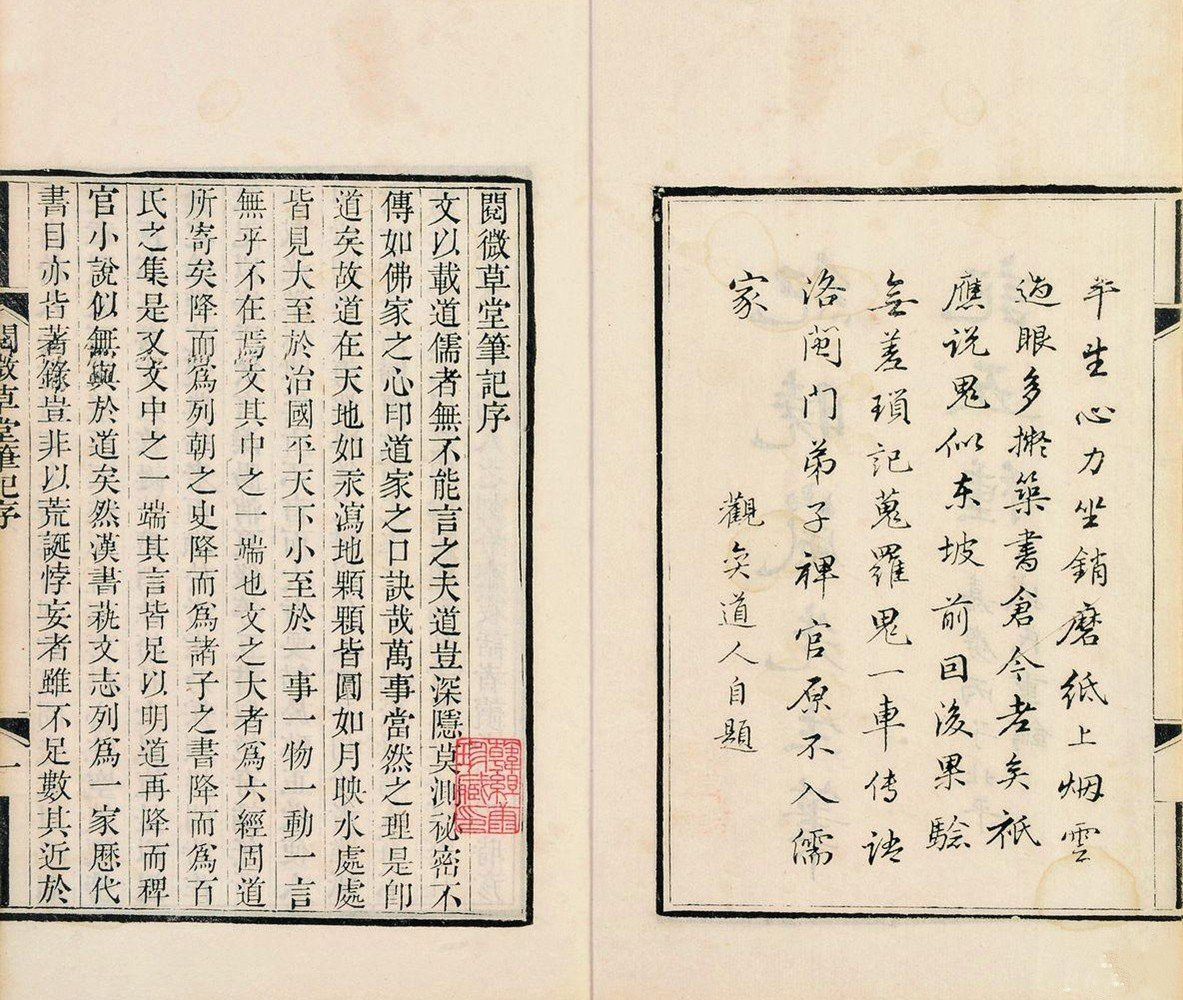 平生心力坐銷磨紙上烟雲
過眼多擬築書倉今老矣祇
應说鬼似东坡前因後果驗
無差瑣记蒐羅鬼一車传语
洛閩门弟子稗官原不入儒
家
觀奕道人自題
閱微草堂筆記序
文以載道儒者無不能言之夫道豈深隱莫測祕密不
傳如佛家之心印道家之口訣哉萬事當然之理是卽
道矣故道在天地如汞瀉地顆顆皆圓如月映水處處
皆見大至於治國平天下小至於一事一物一動一言
無乎不在焉文其中之一端也文之大者爲六經固道
所寄矣降而爲列朝之史降而爲諸子之書降而爲百
氏之集是又文中之一端其言皆足以明道再降而稗
官小說似無與於道矣然漢書蓺文志列爲一家歴代
書目亦皆著錄豈非以荒誕悖妄者雖不足數其近於
閱微草堂筆記序
一